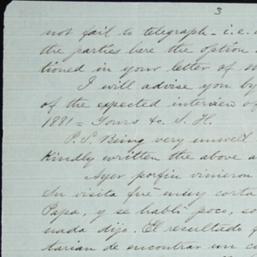 3
not fail to telegraph - i.e.
the parties here the option
tioned in your letter of
I will advise you by
of the expected interview of
1881 = Yours &c. S. H.
P.S. Being very unwell
Kindly written the above a
Ayer porfin vinieron
Su visita fué muy corta
Papa, y se habló poco, so
nada dijo. El resultado f
tarian de encontrar un c